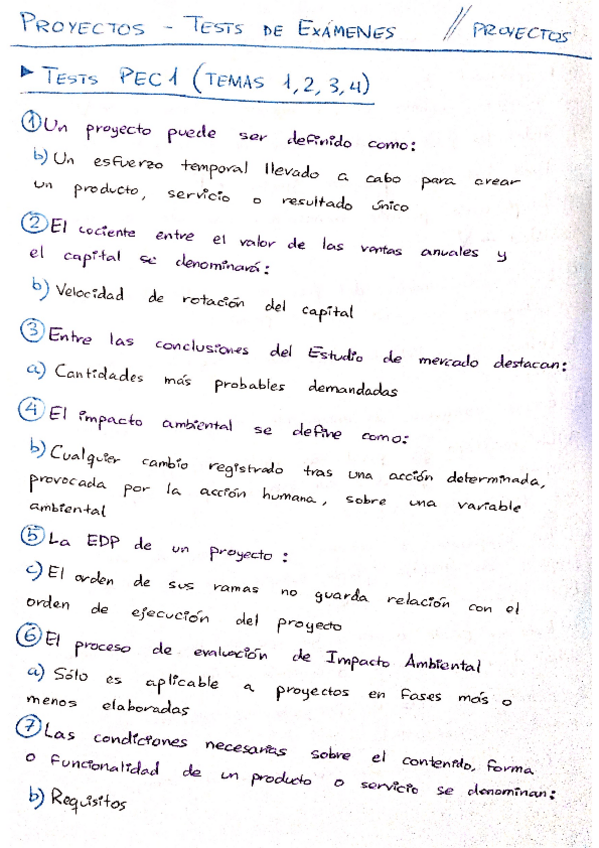 PROYECTOS - TESTS DE EXÁMENES // PROYECTOS
► TESTS PEC1 (TEMAS 1,2,3,4)
① Un proyecto puede ser definido como:
b) Un esfuerzo temporal llevado a cabo para crear
un producto, servicio o resultado único
② El cociente entre el valor de las ventas anuales y
el capital se denominará:
b) Velocidad de rotación del capital
③ Entre las conclusiones del Estudio de mercado destacan:
a) Cantidades más probables demandadas
④ El impacto ambiental se define como:
b) Cualquier cambio registrado tras una acción determinada,
provocada por la acción humana, sobre una variable
ambiental
⑤ La EDP de un proyecto:
c) El orden de sus ramas no guarda relación con el
orden de ejecución del proyecto
⑥ El proceso de evaluación de Impacto Ambiental
a) Sólo es aplicable a proyectos en fases más o
menos elaboradas
⑦ Las condiciones necesarias sobre el contenido, forma
o funcionalidad de un producto o servicio se denominan:
b) Requisitos